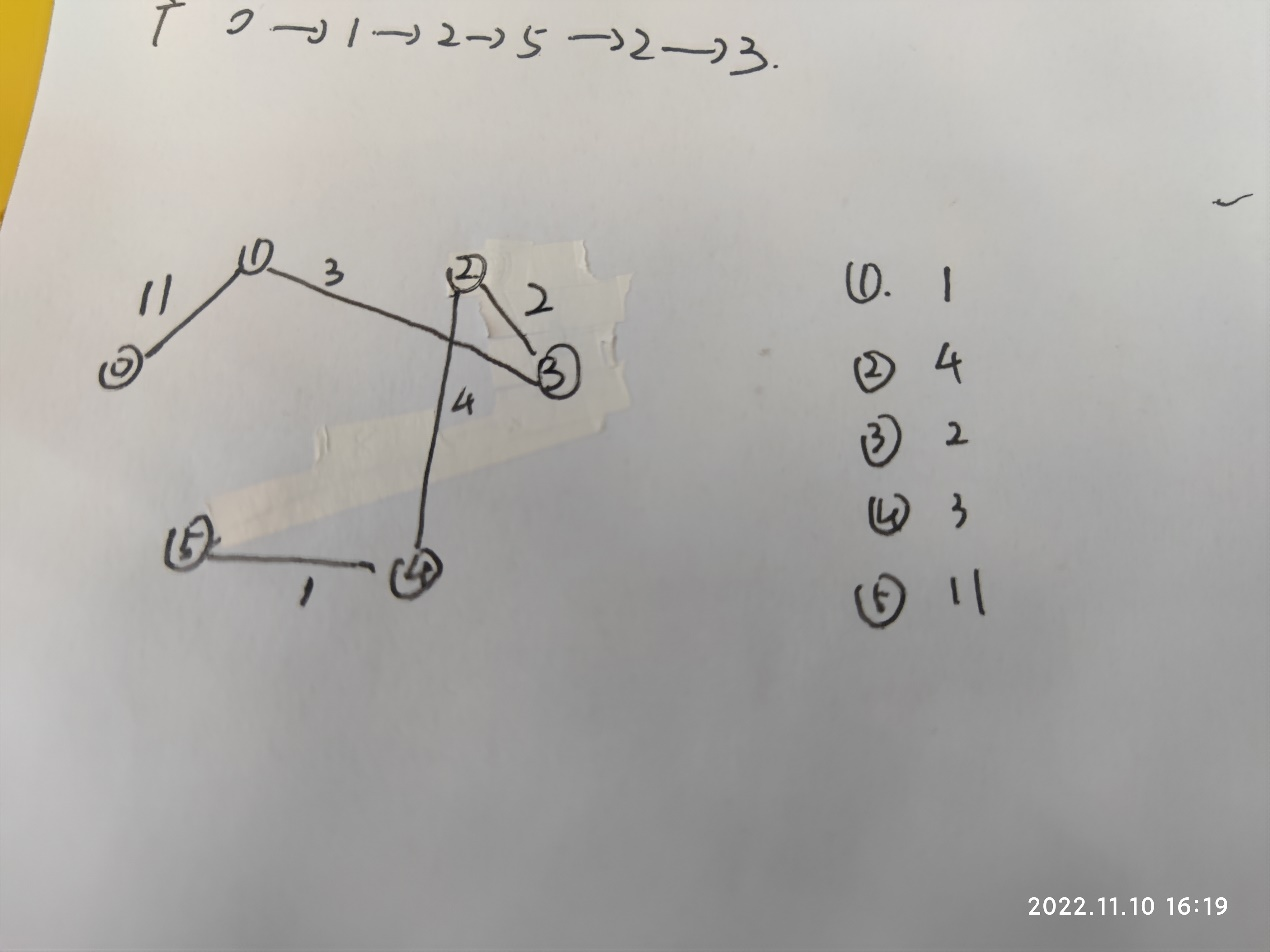 0 → 1 → 2 → 5 → 2 → 3.
① 3 ② 2
11
⓪ ③
4
⑤ ④
1
①. 1
② 4
③ 2
④ 3
⑤ 11
2022.11.10 16:19